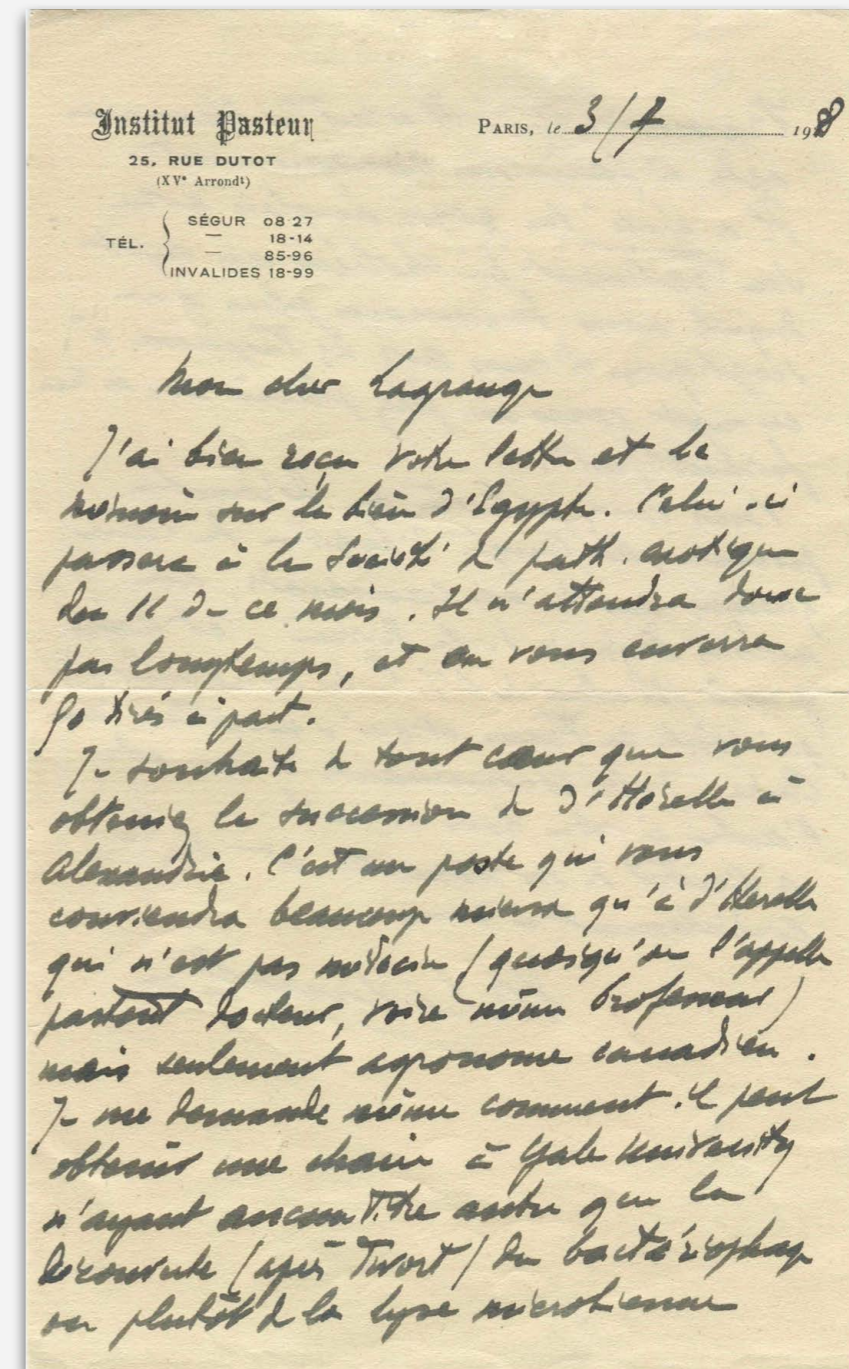 Institut Pasteur
25, RUE DUTOT
(XVe Arrondt)
TÉL.
SÉGUR 08 27
— 18-14
— 85-96
INVALIDES 18-99
PARIS, le 3/7 1928
Mon cher Lagrange
J'ai bien reçu votre lettre et le
mémoire sur la d'Egypte. Celui-ci
passera à la Société de path. exotique
du 11 de ce mois. Il n'attendra donc
pas longtemps, et on vous enverra
50 tirés à part.
Je souhaite de tout cœur que vous
obteniez la succession de d'Herelle à
Alexandrie. C'est un poste qui vous
conviendra beaucoup mieux qu'à d'Herelle
qui n'est pas médecin (quoiqu'on l'appelle
partout docteur, voire même Professeur)
mais seulement agronome canadien.
Je me demande même comment il peut
obtenir une chaire à Yale University
n'ayant aucun Titre autre que la
découverte (après Twort) du bactériophage
ou plutôt de la lyse microbienne